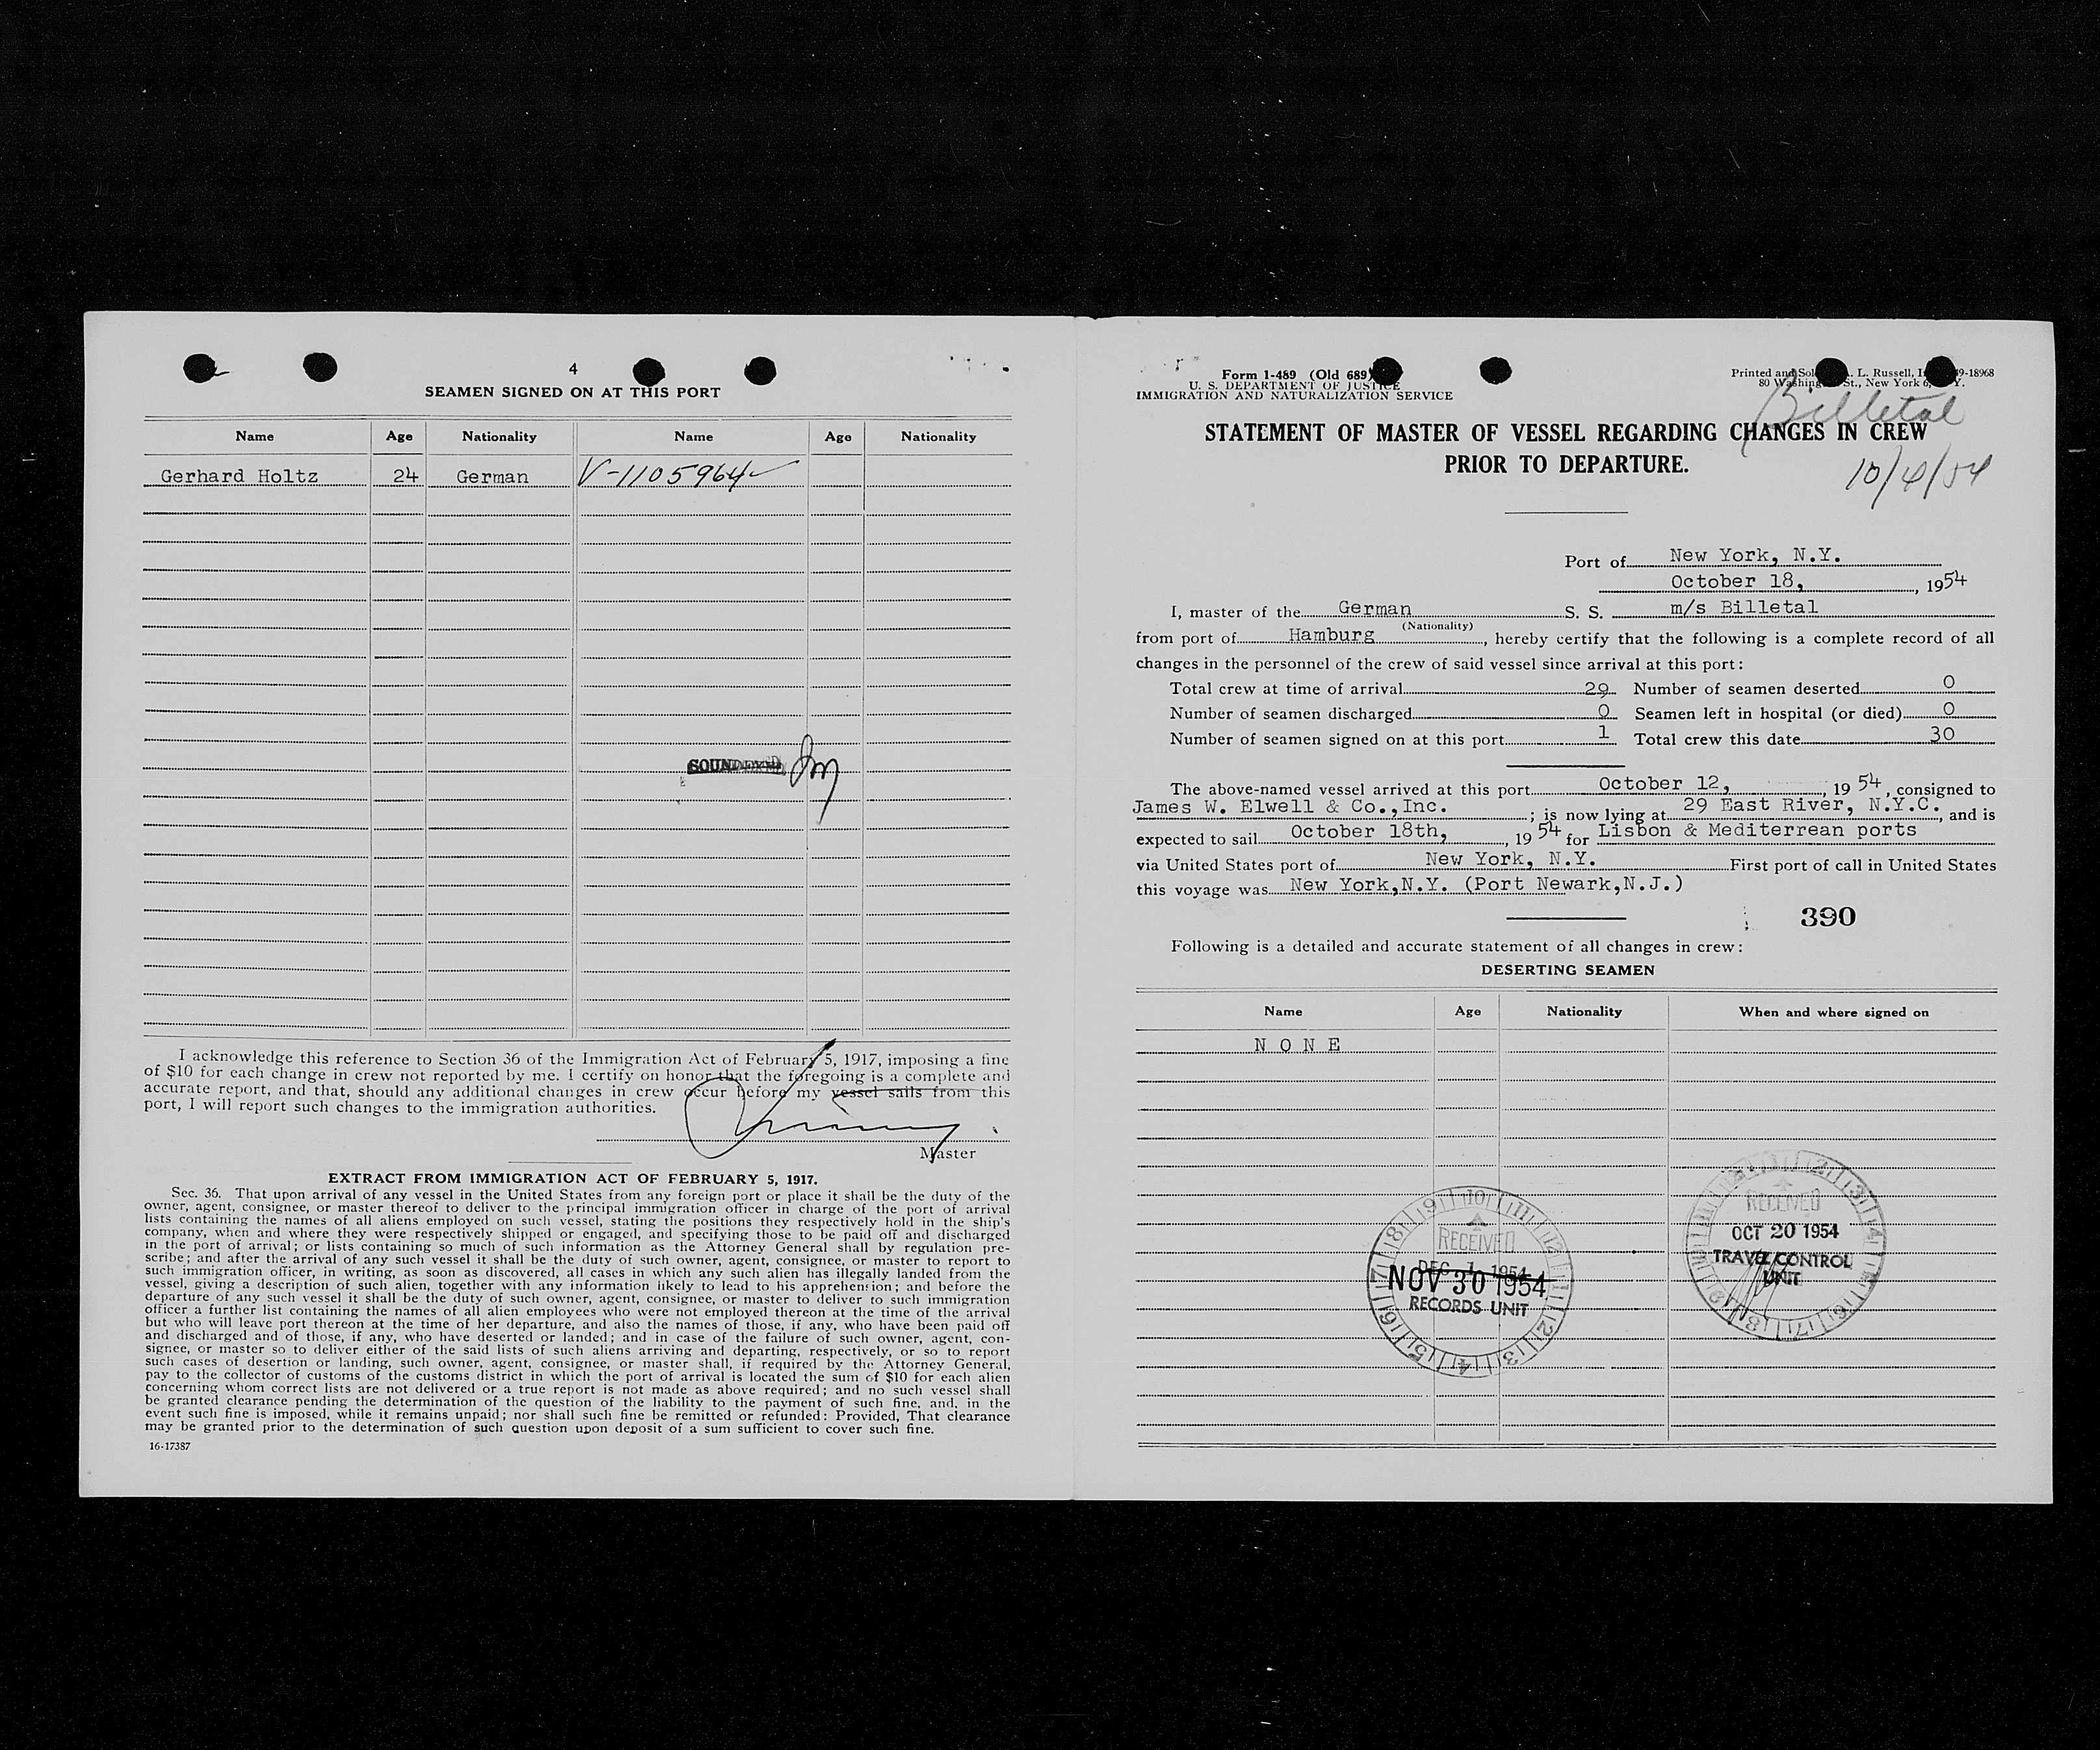 4
SEAMEN SIGNED ON AT THIS PORT
Name Age Nationality Name Age Nationality
Gerhard Holtz 24 German V-1105964
SOUNDEXED
I acknowledge this reference to Section 36 of the Immigration Act of February 5, 1917, imposing a fine
of $10 for each change in crew not reported by me. I certify on honor that the foregoing is a complete and
accurate report, and that, should any additional changes in crew occur before my vessel sails from this
port, I will report such changes to the immigration authorities.
Master
EXTRACT FROM IMMIGRATION ACT OF FEBRUARY 5, 1917.
Sec. 36. That upon arrival of any vessel in the United States from any foreign port or place it shall be the duty of the
owner, agent, consignee, or master thereof to deliver to the principal immigration officer in charge of the port of arrival
lists containing the names of all aliens employed on such vessel, stating the positions they respectively hold in the ship's
company, when and where they were respectively shipped or engaged, and specifying those to be paid off and discharged
in the port of arrival; or lists containing so much of such information as the Attorney General shall by regulation pre-
scribe; and after the arrival of any such vessel it shall be the duty of such owner, agent, consignee, or master to report to
such immigration officer, in writing, as soon as discovered, all cases in which any such alien has illegally landed from the
vessel, giving a description of such alien, together with any information likely to lead to his apprehension; and before the
departure of any such vessel it shall be the duty of such owner, agent, consignee, or master to deliver to such immigration
officer a further list containing the names of all alien employees who were not employed thereon at the time of the arrival
but who will leave port thereon at the time of her departure, and also the names of those, if any, who have been paid off
and discharged and of those, if any, who have deserted or landed; and in case of the failure of such owner, agent, con-
signee, or master so to deliver either of the said lists of such aliens arriving and departing, respectively, or so to report
such cases of desertion or landing, such owner, agent, consignee, or master shall, if required by the Attorney General,
pay to the collector of customs of the customs district in which the port of arrival is located the sum of $10 for each alien
concerning whom correct lists are not delivered or a true report is not made as above required; and no such vessel shall
be granted clearance pending the determination of the question of the liability to the payment of such fine, and, in the
event such fine is imposed, while it remains unpaid; nor shall such fine be remitted or refunded: Provided, That clearance
may be granted prior to the determination of such question upon deposit of a sum sufficient to cover such fine.
16-17387
Form 1-489 (Old 689)
U. S. DEPARTMENT OF JUSTICE
IMMIGRATION AND NATURALIZATION SERVICE
Printed and Sol L. Russell, 9-18968
80 Washing St., New York 6, Y.
Billetal
STATEMENT OF MASTER OF VESSEL REGARDING CHANGES IN CREW
PRIOR TO DEPARTURE.
10/4/54
Port of New York, N.Y.
October 18, , 1954
I, master of the German S. S. m/s Billetal
(Nationality)
from port of Hamburg , hereby certify that the following is a complete record of all
changes in the personnel of the crew of said vessel since arrival at this port:
Total crew at time of arrival 29 Number of seamen deserted 0
Number of seamen discharged 0 Seamen left in hospital (or died) 0
Number of seamen signed on at this port 1 Total crew this date 30
The above-named vessel arrived at this port October 12, , 19 54, consigned to
James W. Elwell & Co.,Inc. ; is now lying at 29 East River, N.Y.C. , and is
expected to sail October 18th, , 19 54 for Lisbon & Mediterrean ports
via United States port of New York, N.Y. First port of call in United States
this voyage was New York,N.Y. (Port Newark,N.J.)
390
Following is a detailed and accurate statement of all changes in crew:
DESERTING SEAMEN
Name Age Nationality When and where signed on
N O N E
RECEIVED
DEC 1 1954
NOV 30 1954
RECORDS UNIT
RECEIVED
OCT 20 1954
TRAVEL CONTROL
UNIT